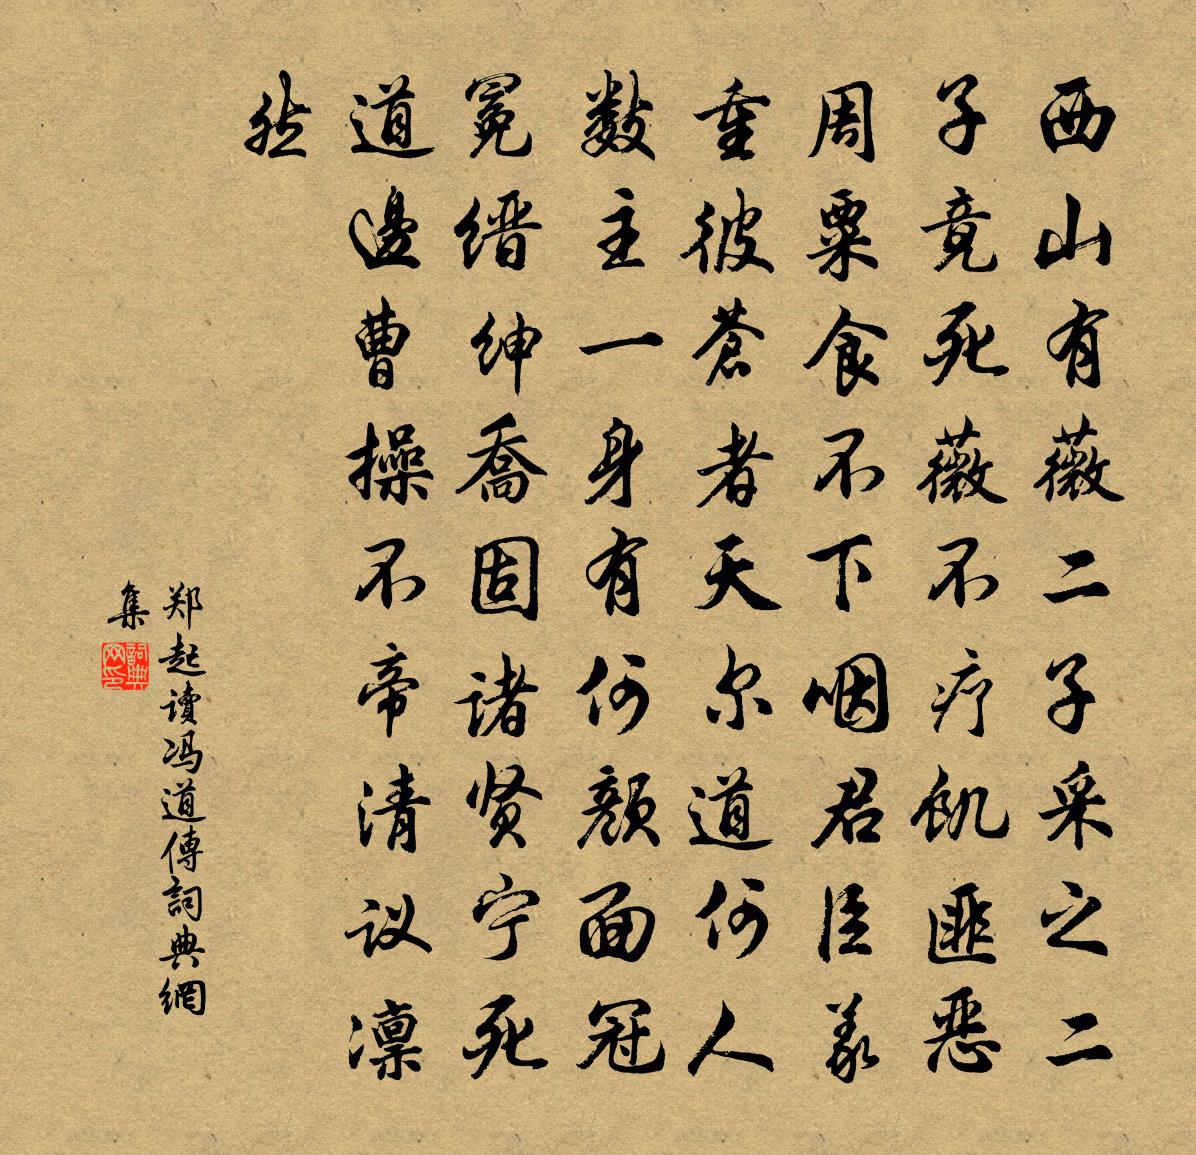 西山有薇二子采之二
子竟死薇不疗饥匪恶
周粟食不下咽君臣義
重彼蒼者天尔道何人
数主一身有何颜面冠
冕缙绅喬固诸贤宁死
道邊曹操不帝清议凛
然
郑起讀冯道傳詞典網
集
詞典网印